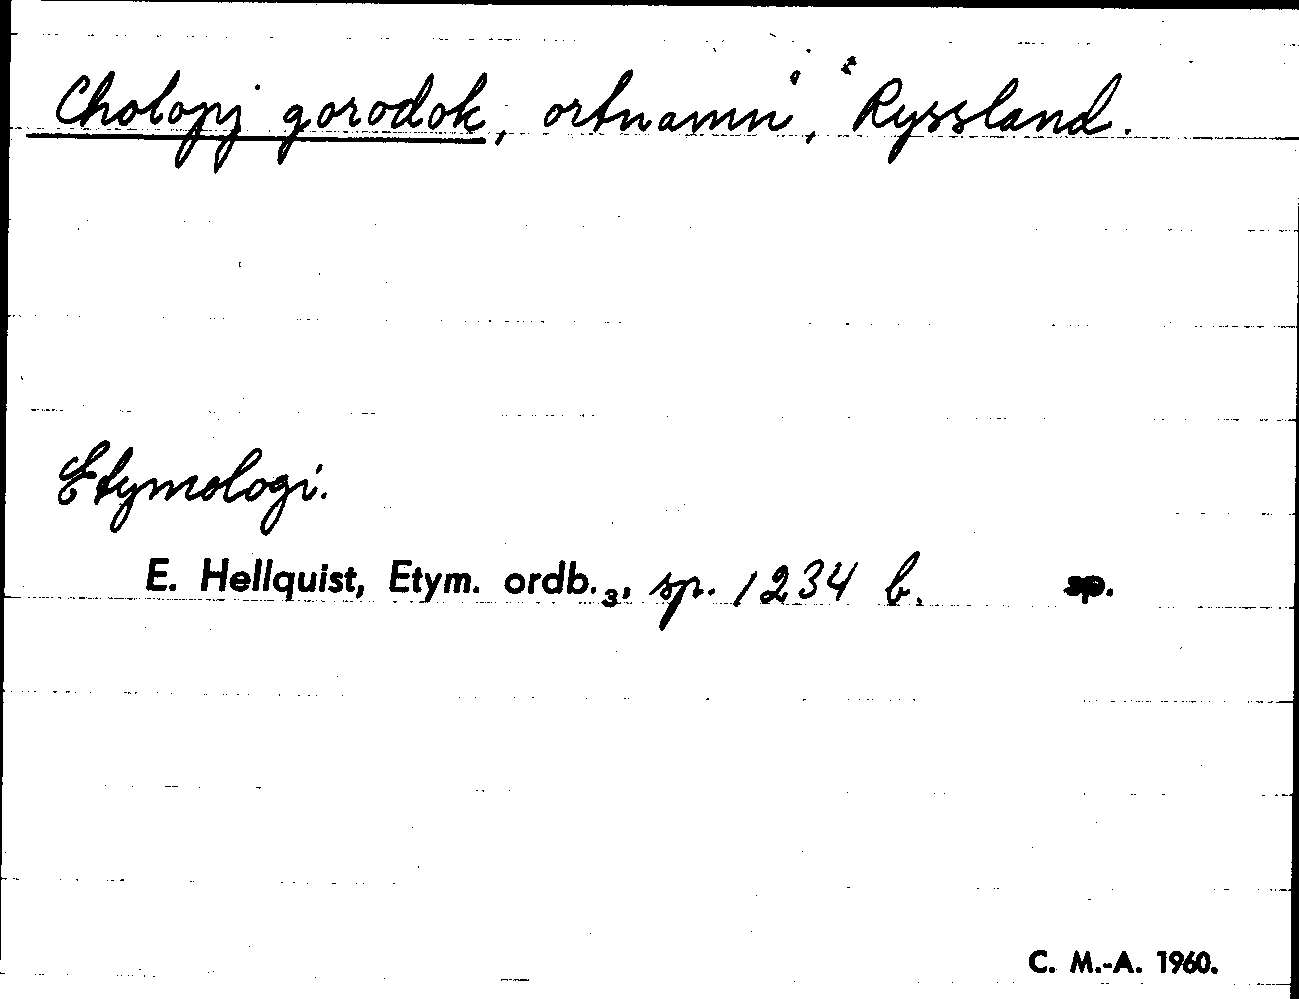 Cholopj gorodok, ortnamn, Ryssland.
Etymologi.
E. Hellquist, Etym. ordb.₃, sp. 1234 b. sp.
C. M.-A. 1960.